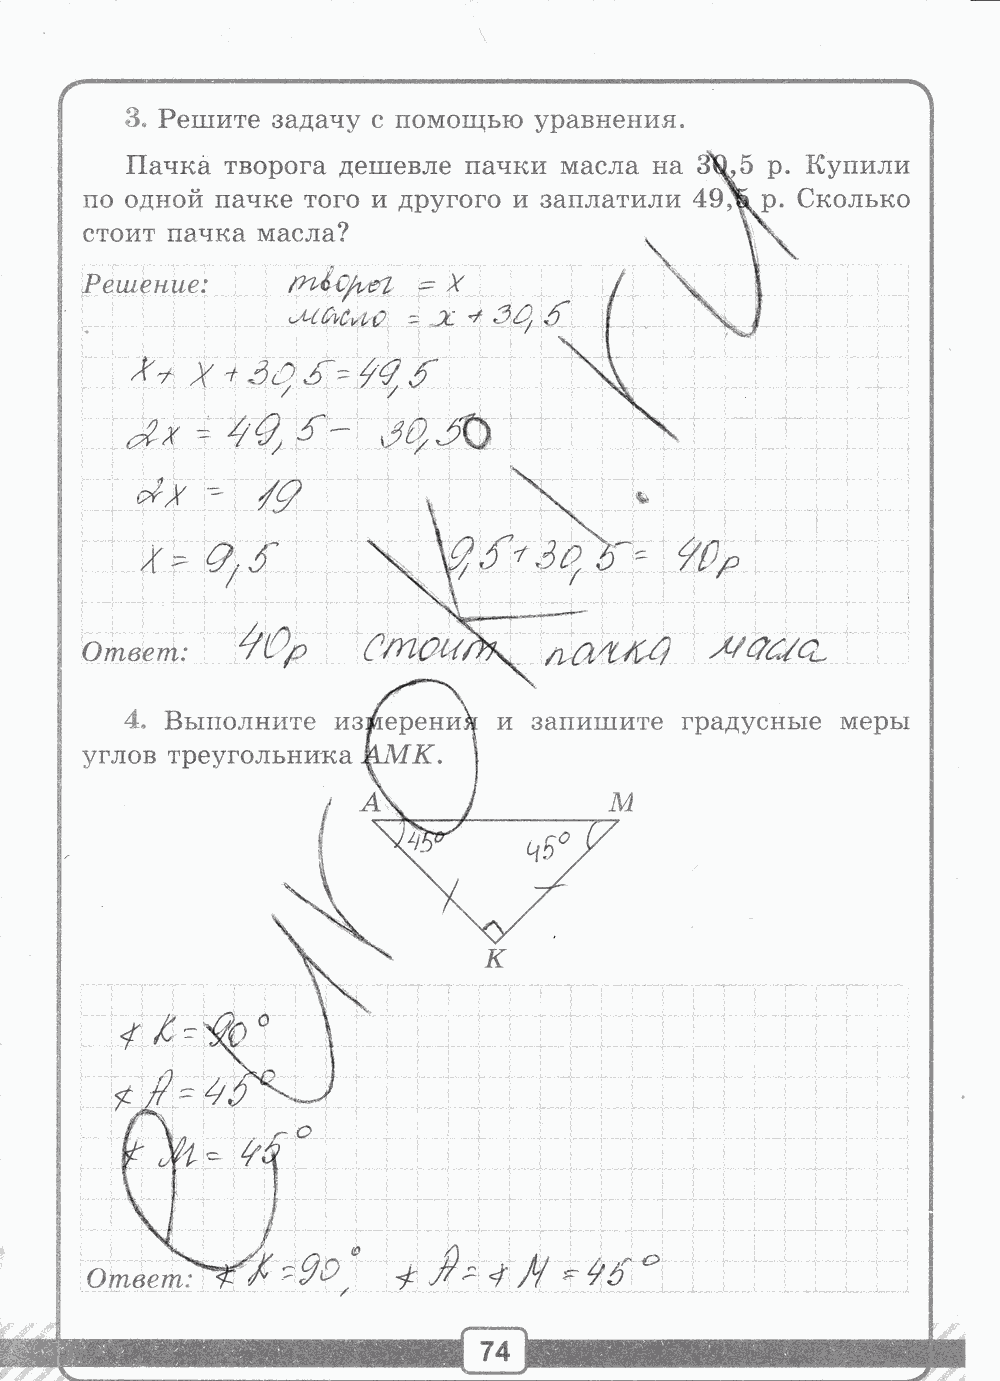 3. Решите задачу с помощью уравнения.
Пачка творога дешевле пачки масла на 30,5 р. Купили
по одной пачке того и другого и заплатили 49,5 р. Сколько
стоит пачка масла?
Решение: творог = x
масло = x + 30,5
x + x + 30,5 = 49,5
2x = 49,5 - 30,50
2x = 19
x = 9,5 9,5 + 30,5 = 40р
Ответ: 40р стоит пачка масла
4. Выполните измерения и запишите градусные меры
углов треугольника AMK.
A M
45° 45°
K
∢ K = 90°
∢ A = 45°
∢ M = 45°
Ответ: ∢ K = 90°, ∢ A = ∢ M = 45°
74